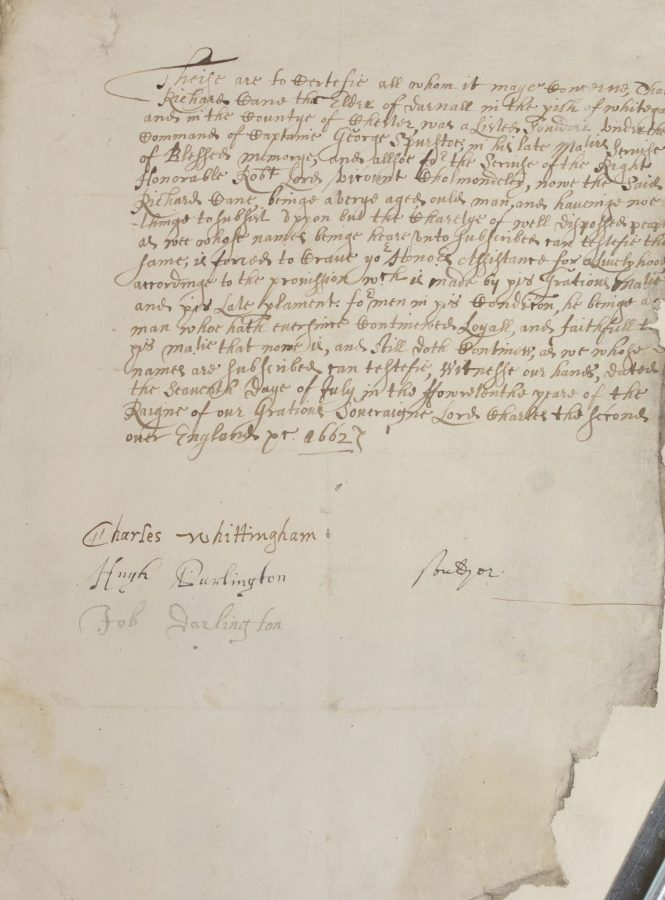 Theise are to Certefie all whom it maye Concerne, That
Richard Cane the Elder of Darnall in the pish of whitega
and in the Countye of Chester was a Listed Souldier under the
Command of Captaine George Spurstoe, in his late Maties Servise
of Blessed memorye, and allsoe for the Servise of the Right
Honorable Robt Lord Vicount Cholmondeley, nowe the said
Richard Cane, beinge a verye aged ould man, and havinge noe
thinge to subsist uppon but the Charetye of well disposed people
as wee whose names beinge heare unto subscribed can testefie the
same, is forced to Crave yor Honors Assistance for a Livelyhood
accordinge to the provission wch is made by his Gratious Matie
and his Late plament for men in his Condition, he beinge a
man whoe hath ever since Continewed Loyall, and faithfull t
his matie that nowe is, and still doth Continew, as we whose
names are subscribed can testefie, Witnesse our hands, dated
the Seaventh Daye of July in the ffowretenthe yeare of the
Raigne of our Gratious Soveraigne Lord Charles the second
over England &c. 1662
Charles Whittingham
Hugh Darlington
Job Darlington